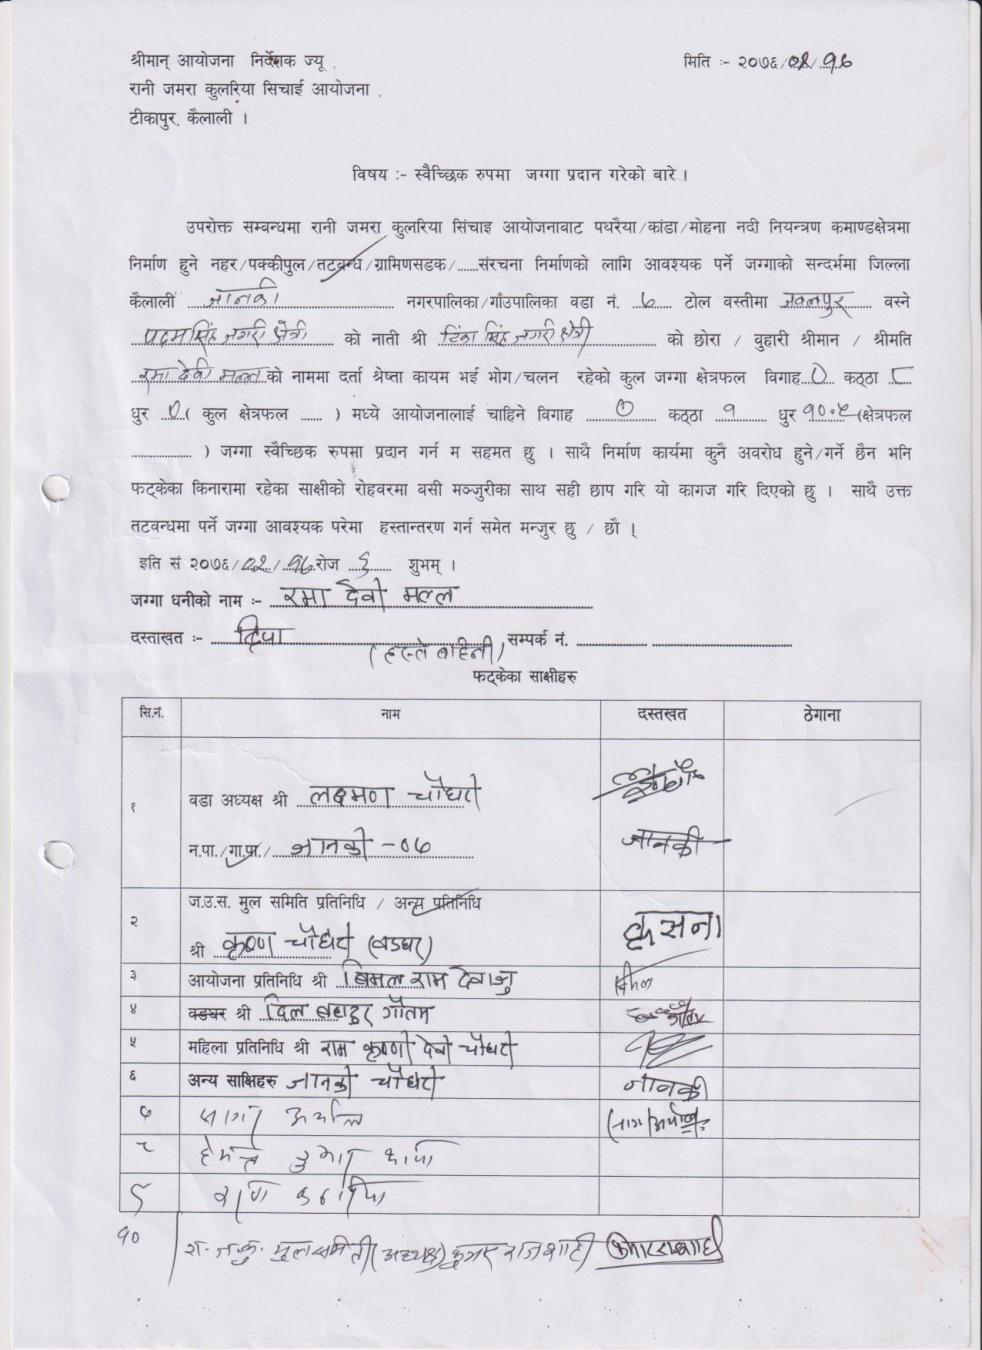 श्रीमान् आयोजना निर्देशक ज्यू
मिति :- २०७६/०२/१६
रानी जमरा कुलरिया सिचाई आयोजना .
टीकापुर, कैलाली ।
विषय :- स्वैच्छिक रुपमा जग्गा प्रदान गरेको बारे ।
उपरोक्त सम्बन्धमा रानी जमरा कुलरिया सिंचाइ आयोजनाबाट पथरैया/कांडा/मोहना नदी नियन्त्रण कमाण्डक्षेत्रमा
निर्माण हुने नहर/पक्कीपुल/तटवन्ध/ग्रामिणसडक/......संरचना निर्माणको लागि आवश्यक पर्ने जग्गाको सन्दर्भमा जिल्ला
कैलाली जानकी नगरपालिका/गाँउपालिका वडा नं. ७ टोल वस्तीमा जबलपुर वस्ने
पदमसिंह जगरी क्षेत्री को नाती श्री टिका सिंह जगरी क्षेत्री को छोरा / बुहारी श्रीमान / श्रीमति
रमा देवी मल्ल को नाममा दर्ता श्रेष्ता कायम भई भोग/चलन रहेको कुल जग्गा क्षेत्रफल विगाह ० कठ्ठा ८
धुर ० ( कुल क्षेत्रफल ...... ) मध्ये आयोजनालाई चाहिने विगाह ० कठ्ठा १ धुर १०.५ (क्षेत्रफल
.................. ) जग्गा स्वैच्छिक रुपमा प्रदान गर्न म सहमत छु । साथै निर्माण कार्यमा कुनै अवरोध हुने/गर्ने छैन भनि
फट्केका किनारामा रहेका साक्षीको रोहवरमा वसी मञ्जुरीका साथ सही छाप गरि यो कागज गरि दिएको छु । साथै उक्त
तटवन्धमा पर्ने जग्गा आवश्यक परेमा हस्तान्तरण गर्न समेत मन्जुर छु / छौ ।
इति सं २०७६/०२/१६ रोज ६ शुभम् ।
जग्गा धनीको नाम :- रमा देवी मल्ल
दस्ताखत :- दिपा (हस्ते बाहिनी) सम्पर्क नं. .................. ..................
फट्केका साक्षीहरु
सि.नं. नाम दस्तखत ठेगाना
१ वडा अध्यक्ष श्री लक्ष्मण चौधरी
न.पा./गा.पा./ जानकी -०७ जानकी
२ ज.उ.स. मुल समिति प्रतिनिधि / अन्य प्रतिनिधि
श्री कृष्ण चौधरी (बडघर) कृसना
३ आयोजना प्रतिनिधि श्री बिमल राम देवाजु
४ वडघर श्री दिल बहादुर गौतम
५ महिला प्रतिनिधि श्री राम कृष्णी देवी चौधरी
६ अन्य साक्षिहरु जानकी चौधरी जानकी
७
८ हेमन्त कुमार
९
१० रा. ज. कु. मूल समिती (अध्यक्ष)